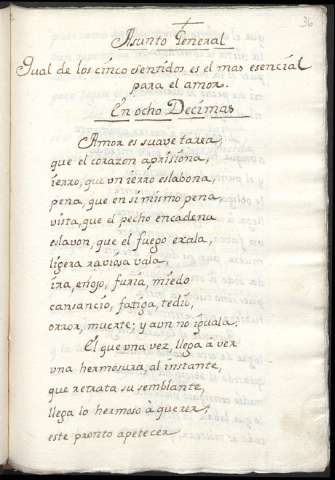 36
Asunto General
Qual de los cinco sentidos es el mas esencial
para el amor.
En ocho Decimas
Amor es suave tarea,
que el corazon aprisiona,
ierro, que un ierro eslabona
pena, que en si mismo pena
vista, que el pecho encadena
eslavon, que el fuego exala,
ligera raviosa vala,
ira, enojo, furia, miedo
cansancio, fatiga, tedio,
orror, muerte; y aun no iguala.
El que una vez, llega à vèr
una hermosura, al instante,
que retrata su semblante,
llega lo hermoso à querer;
este pronto apetecer